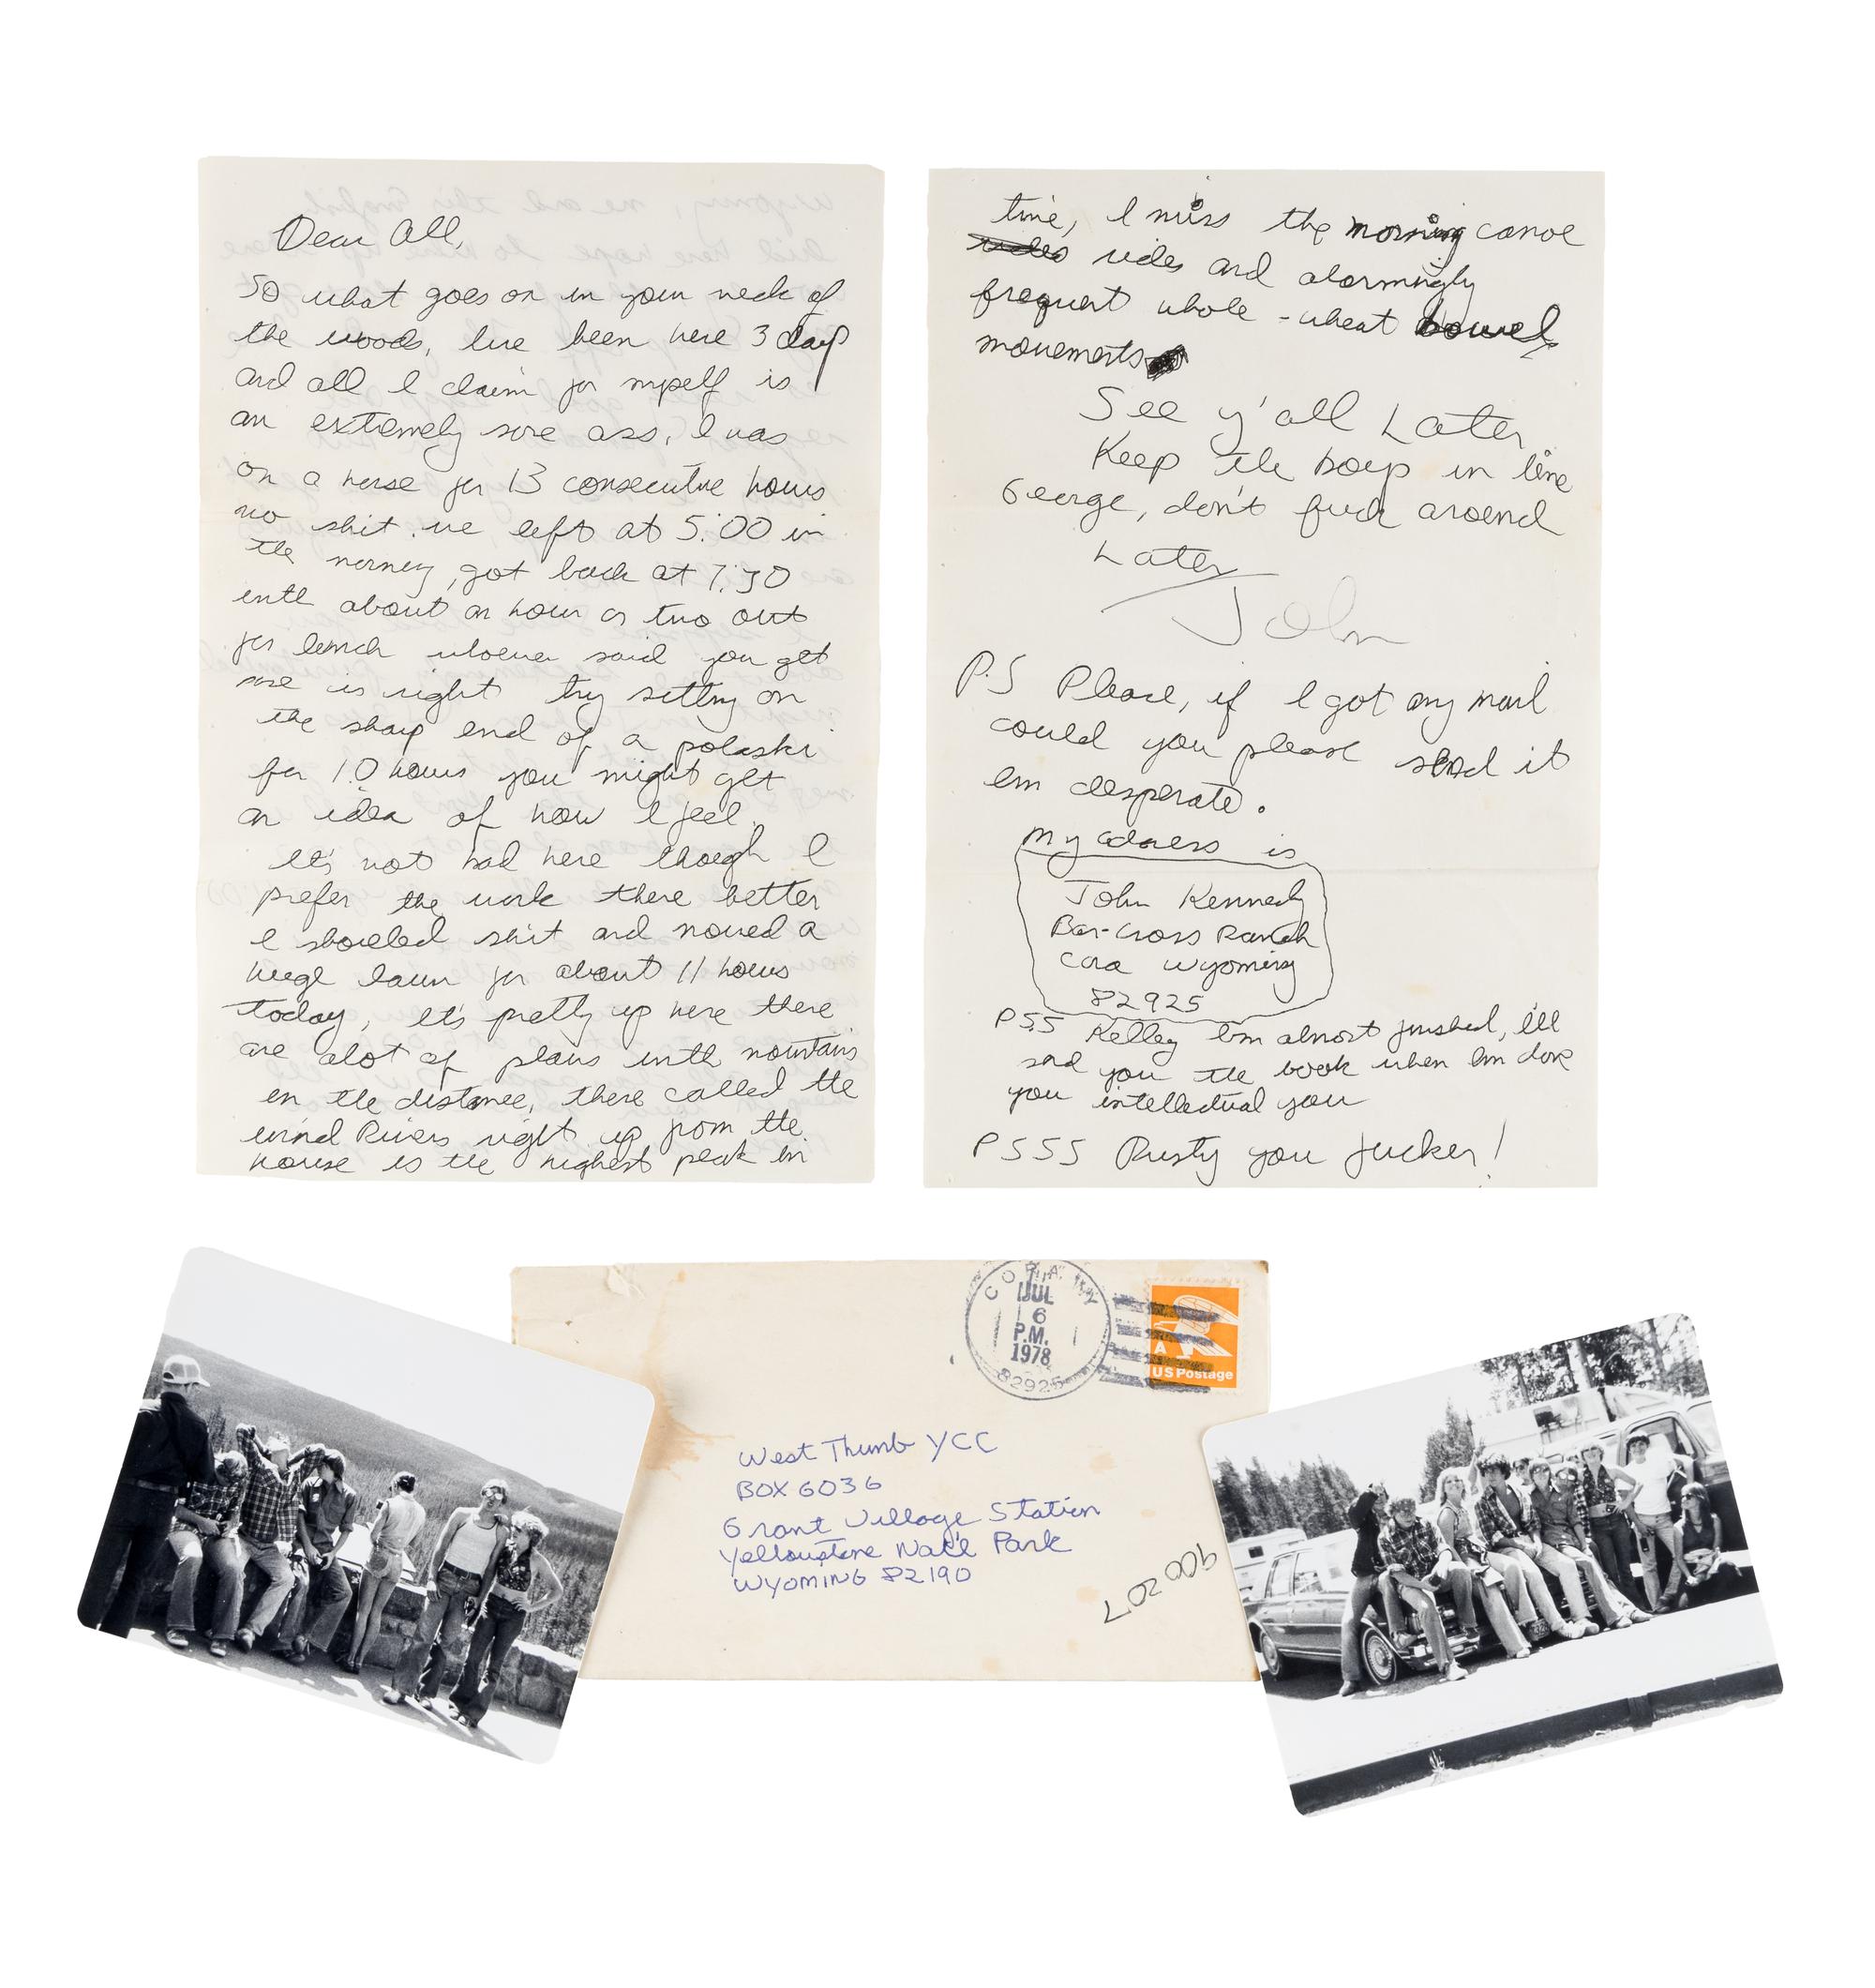 Dear All,
So what goes on in your neck of
the woods, Ive been here 3 days
and all I claim for myself is
an extremely sore ass, I was
on a horse for 13 consecutive hours
no shit we left at 5:00 in
the morning, got back at 7:30
with about an hour or two out
for lunch whoever said you get
sore is right try setting on
the sharp end of a polaski
for 10 hours you might get
an idea of how I feel.
It's not bad here though I
prefer the work there better
I shoveled shit and mowed a
huge lawn for about 11 hours
today, it's pretty up here there
are alot of plains with mountains
in the distance, there called the
wind Rivers right up from the
house is the highest peak in
time, I miss the morning canoe
rides and alarmingly
frequent whole-wheat bowel
movements
See y'all Later
Keep the boys in line
George, don't fuck around
Later
John
P.S Please, if I got any mail
could you please send it
Im desperate.
My adress is
John Kennedy
Bar-Cross Ranch
Cora Wyoming
82925
PSS Kelley Im almost finished, I'll
send you the book when Im done
you intellectual you
PSSS Rusty you fucker!
CORA, WY
JUL
6
P.M.
1978
82925
A
US Postage
West Thumb YCC
BOX 6036
Grant Village Station
Yellowstone Nat'l Park
WYOMING 82190